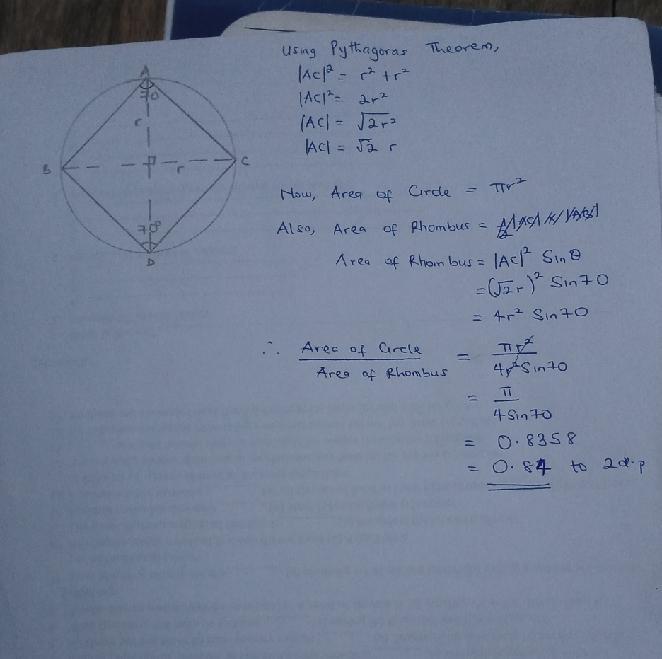 Using Pythagoras Theorem,
|AC|² = r² + r²
|AC|² = 2r²
|AC| = √2r²
|AC| = √2 r
A
70
r
B
r
C
70°
D
Now, Area of Circle = πr²
Also, Area of Rhombus =
Area of Rhombus = |AC|² Sinθ
= (√2r)² Sin70
= 4r² Sin70
∴ Area of Circle / Area of Rhombus = πr² / 4r²Sin70
= π / 4Sin70
= 0.8358
= 0.84 to 2d.p